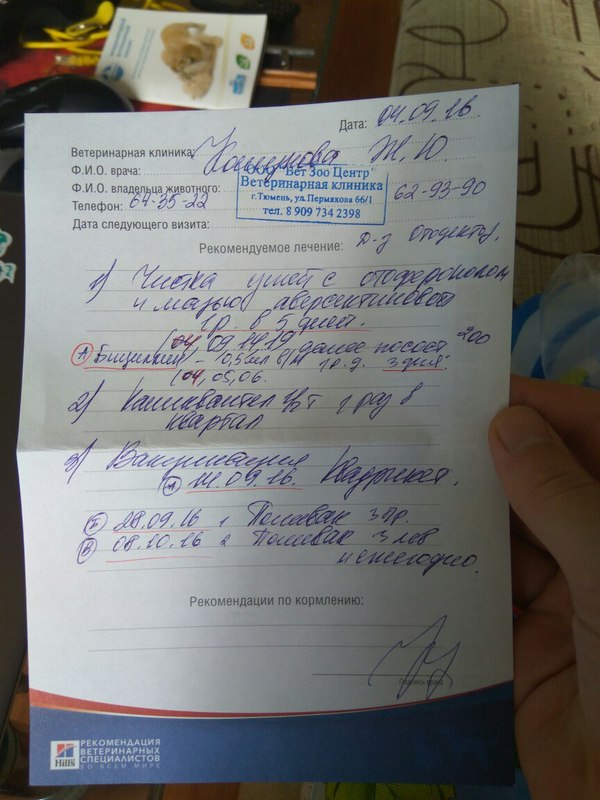 Дата: 04.09.16
Ветеринарная клиника:
Ф.И.О. врача: Ж.Ю.
Ф.И.О. владельца животного:
ООО "Вет Зоо Центр"
Ветеринарная клиника
г.Тюмень, ул.Пермякова 66/1
тел. 8 909 734 2398
Телефон: 64-35-22 62-93-90
Дата следующего визита:
Рекомендуемое лечение: Д-з Отодектоз.
1) Чистка ушей с отофероноло
и мазью аверсектиновой
1 р. в 5 дней.
(04, 09, 14, 19, далее
А - 0,5 мл в/м 1р.д. 3 дня.
(04, 05, 06.
2) 1 раз в
квартал
3) Вакцинация
А 14.09.16. Квадрикат.
Б 28.09.16 1 Поливак
В 08.10.16 2 Поливак
и ежегодно.
Рекомендации по кормлению:
Подпись врача
Hill's
РЕКОМЕНДАЦИЯ
ВЕТЕРИНАРНЫХ
СПЕЦИАЛИСТОВ
ВО ВСЕМ МИРЕ